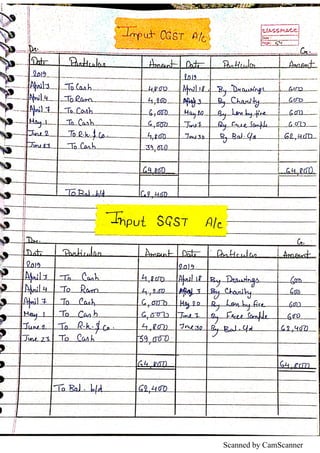 Input CGST A/c
classmate
Dr. Cr.
Date Particular Amount Date Particular Amount
2019 2019
April 3 To Cash 4,800 April 18 By Drawings 600
April 4 To Ram 4,200 By Charity 600
April 7 To Cash 6,000 May 20 By Loss by fire 600
May 1 To Cash 6,000 June 2 By Free Sample 600
June 2 To R.k. & Co. 4,800 June 30 By Bal. c/d 62,400
June 23 To Cash 39,000
64,800 64,800
To Bal. b/d 62,400
Input SGST A/c
Dr. Cr.
Date Particular Amount Date Particular Amount
2019 2019
April 3 To Cash 4,800 April 18 By Drawings 600
April 4 To Ram 4,200 By Charity 600
April 7 To Cash 6,000 May 20 By Loss by fire 600
May 1 To Cash 6,000 June 2 By Free Sample 600
June 2 To R.k. & Co. 4,800 June 30 By Bal c/d 62,400
June 23 To Cash 39,000
64,800 64,800
To Bal. b/d 62,400
Scanned by CamScanner